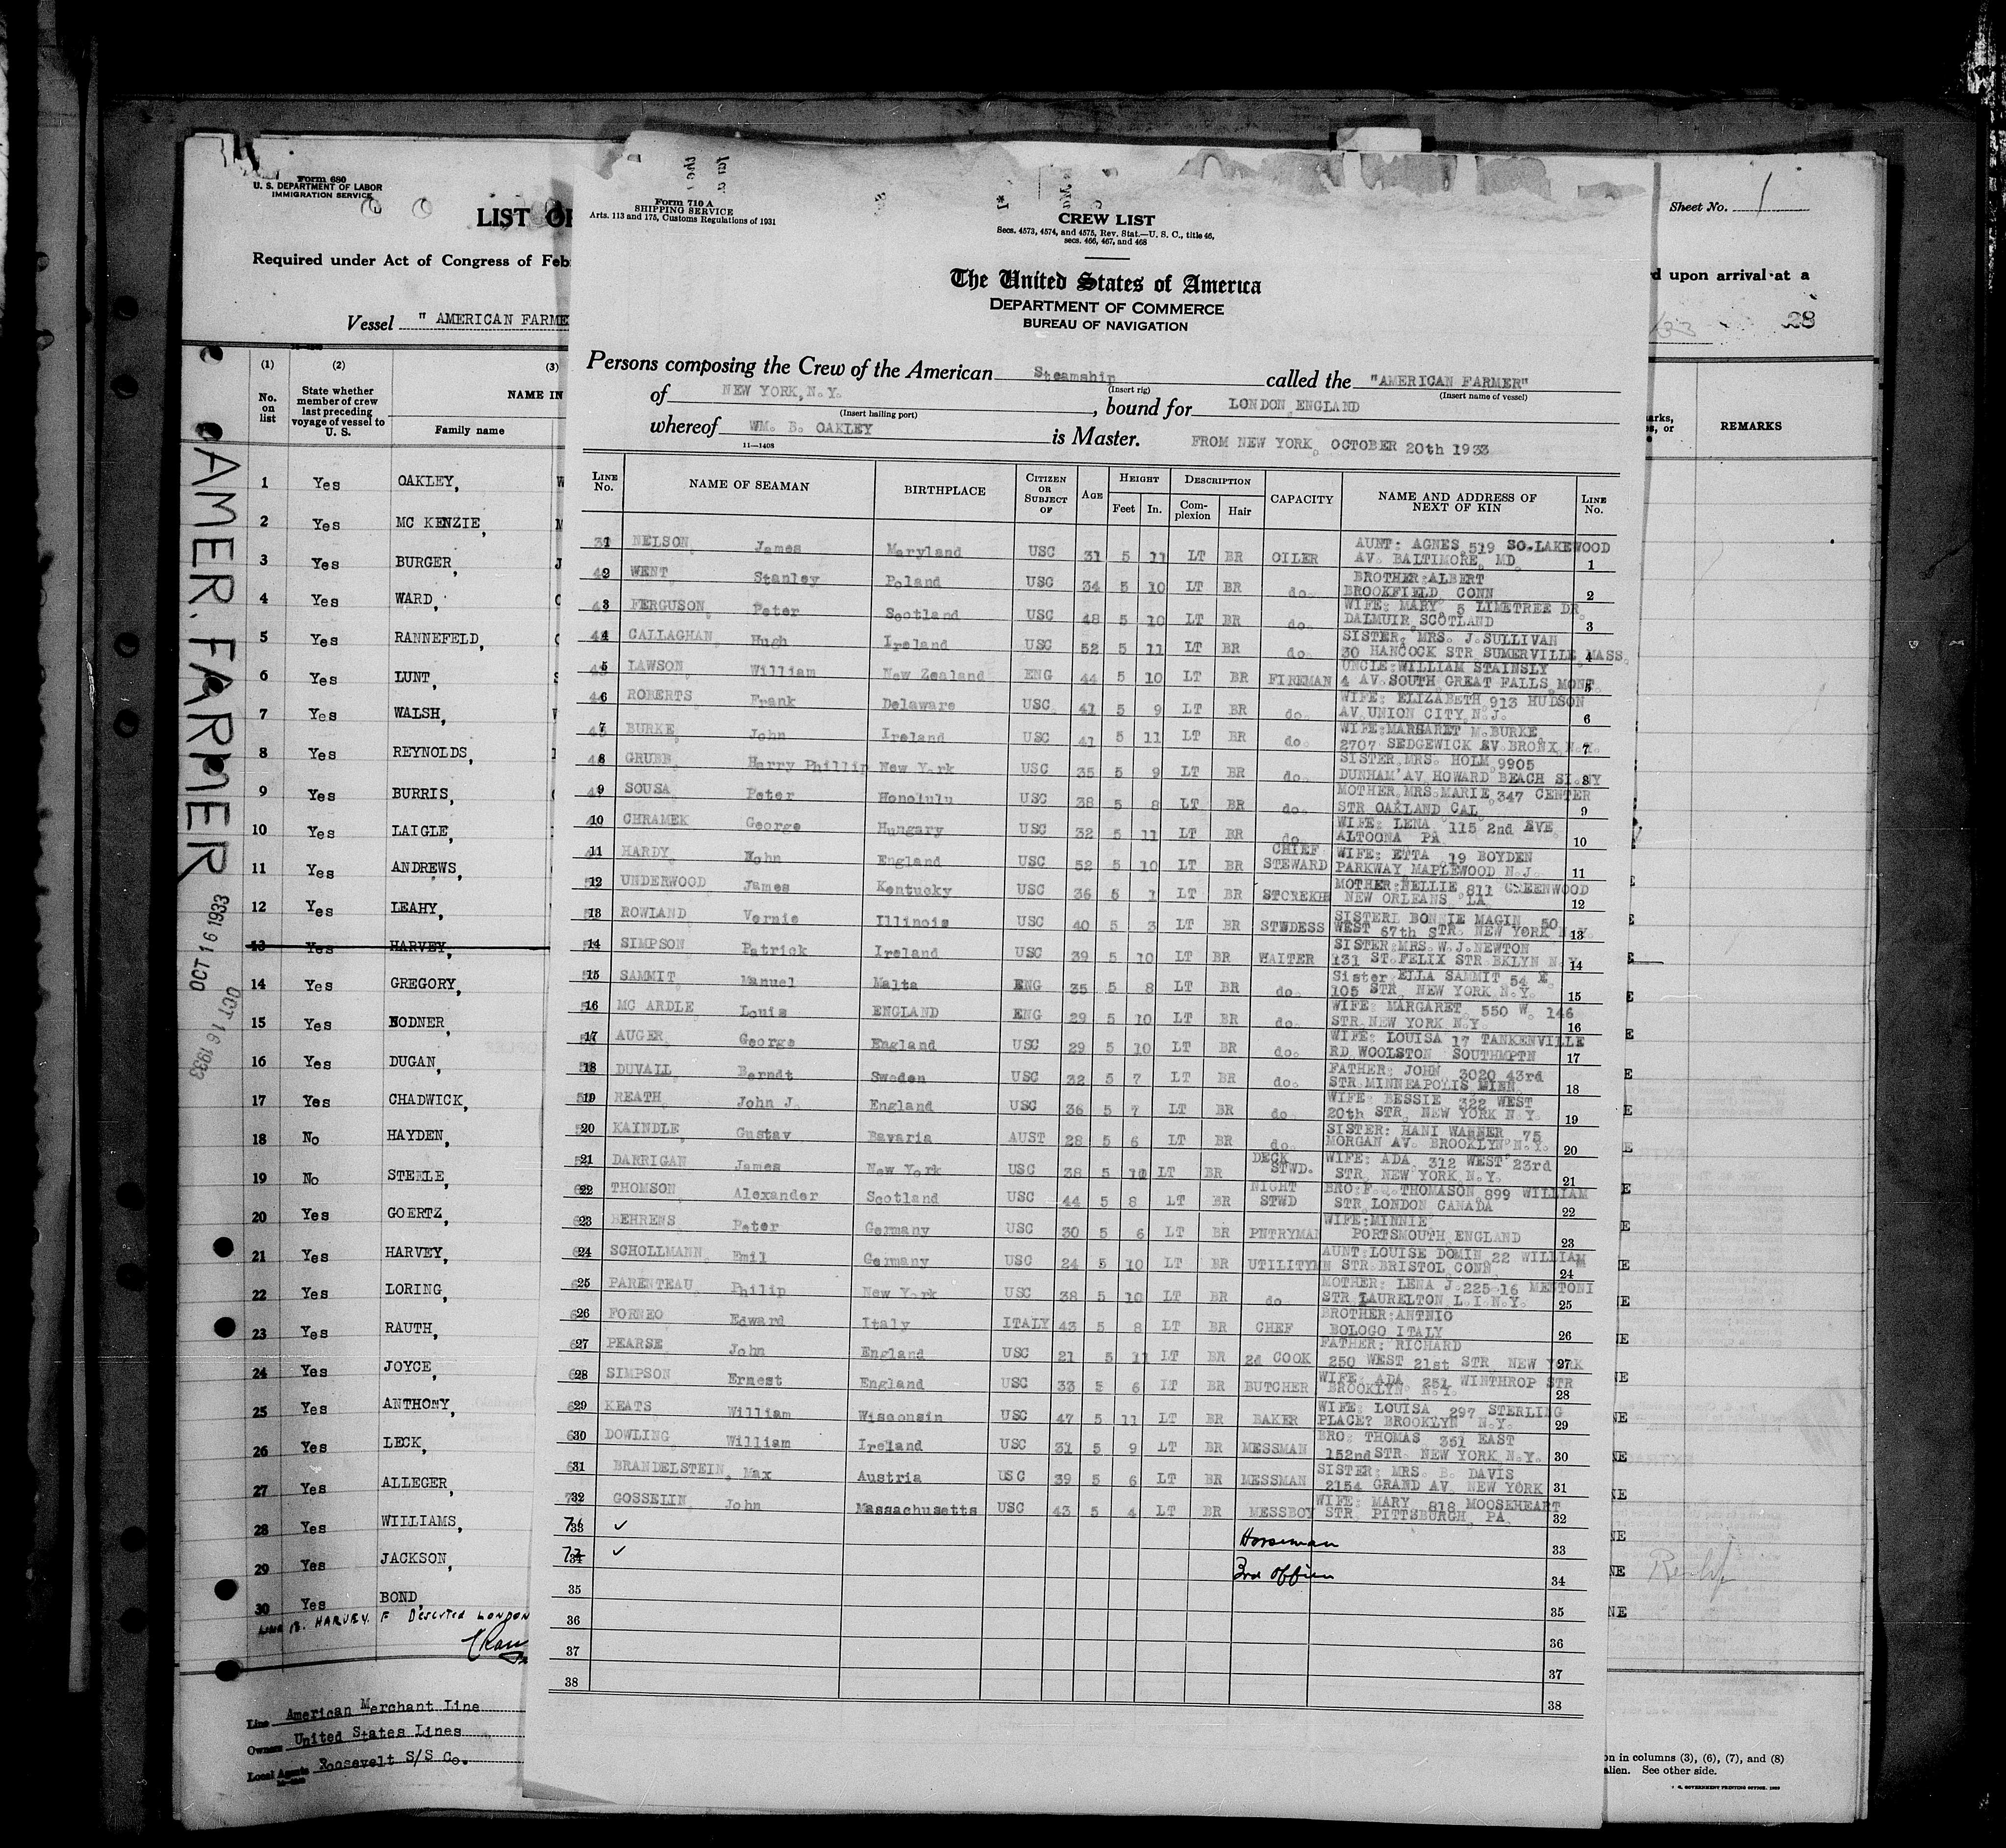 Form 680
U. S. DEPARTMENT OF LABOR
IMMIGRATION SERVICE
LIST OF
Required under Act of Congress of Feb
Vessel " AMERICAN FARME
(1) (2) (3)
No. on list
State whether member of crew last preceding voyage of vessel to U. S.
NAME IN
Family name
1 Yes OAKLEY,
2 Yes MC KENZIE,
3 Yes BURGER,
4 Yes WARD,
5 Yes RANNEFELD,
6 Yes LUNT,
7 Yes WALSH,
8 Yes REYNOLDS,
9 Yes BURRIS,
10 Yes LAIGLE,
11 Yes ANDREWS,
12 Yes LEAHY,
13 Yes HARVEY,
14 Yes GREGORY,
15 Yes BODNER,
16 Yes DUGAN,
17 Yes CHADWICK,
18 No HAYDEN,
19 No STEELE,
20 Yes GOERTZ,
21 Yes HARVEY,
22 Yes LORING,
23 Yes RAUTH,
24 Yes JOYCE,
25 Yes ANTHONY,
26 Yes LECK,
27 Yes ALLEGER,
28 Yes WILLIAMS,
29 Yes JACKSON,
30 Yes BOND,
HARVEY. F Deserted LONDON
Line American Merchant Line
Owners United States Lines
Local Agents Roosevelt S/S Co.
AMER. FARMER
OCT 16 1933
OCT 16 1933
Form 710 A
SHIPPING SERVICE
Arts. 113 and 175, Customs Regulations of 1931
CREW LIST
Secs. 4573, 4574, and 4575, Rev. Stat.—U. S. C., title 46,
secs. 466, 467, and 468
The United States of America
DEPARTMENT OF COMMERCE
BUREAU OF NAVIGATION
Persons composing the Crew of the American Steamship called the "AMERICAN FARMER"
(Insert rig) (Insert name of vessel)
of NEW YORK, N.Y. , bound for LONDON ENGLAND
(Insert hailing port)
whereof WM. B. OAKLEY is Master. FROM NEW YORK, OCTOBER 20th 1933
11—1408
LINE No. NAME OF SEAMAN BIRTHPLACE CITIZEN OR SUBJECT OF AGE HEIGHT Feet In. DESCRIPTION Complexion Hair CAPACITY NAME AND ADDRESS OF NEXT OF KIN LINE No.
1 NELSON James Maryland USC 31 5 11 LT BR OILER AUNT: AGNES 519 SO. LAKEWOOD AV. BALTIMORE MD. 1
2 WENT Stanley Poland USC 34 5 10 LT BR do. BROTHER: ALBERT BROOKFIELD CONN 2
3 FERGUSON Peter Scotland USC 48 5 10 LT BR do. WIFE: MARY. 5 LIMETREE DR. DALMUIR SCOTLAND 3
4 CALLAGHAN Hugh Ireland USC 52 5 11 LT BR do. SISTER: MRS. J. SULLIVAN 30 HANCOCK STR SUMERVILLE MASS. 4
5 LAWSON William New Zealand ENG 44 5 10 LT BR FIREMAN UNCLE: WILLIAM STAINSLY 4 AV. SOUTH GREAT FALLS MONT. 5
6 ROBERTS Frank Delaware USC 41 5 9 LT BR do. WIFE: ELIZABETH 913 HUDSON AV UNION CITY N.J. 6
7 BURKE John Ireland USC 41 5 11 LT BR do. WIFE: MARGARET M. BURKE, 2707 SEDGEWICK AV BRONX N.Y. 7
8 GRUBE Harry Phillip New York USC 35 5 9 LT BR do. SISTER MRS. HOLM 9905 DUNHAM AV HOWARD BEACH SI. NY 8
9 SOUSA Peter Honolulu USC 38 5 8 LT BR do. MOTHER MRS MARIE 347 CENTER STR OAKLAND CAL 9
10 CHRAMEK George Hungary USC 32 5 11 LT BR do. WIFE: LENA 115 2nd AVE ALTOONA PA 10
11 HARDY John England USC 52 5 10 LT BR CHIEF STEWARD WIFE: ETTA 19 BOYDEN PARKWAY MAPLEWOOD N.J. 11
12 UNDERWOOD James Kentucky USC 36 5 1 LT BR STOREKR MOTHER: NELLIE 811 GREENWOOD NEW ORLEANS LA 12
13 ROWLAND Vernie Illinois USC 40 5 3 LT BR STWDESS SISTERL BONNIE MAGIN 50 WEST 67th STR. NEW YORK N.Y. 13
14 SIMPSON Patrick Ireland USC 39 5 10 LT BR WAITER SISTER: MRS. W.J. NEWTON 131 ST. FELIX STR BKLYN N.Y. 14
15 SAMMIT Manuel Malta ENG 35 5 8 LT BR do. Sister ELLA SAMMIT 54 E. 105 STR. NEW YORK N.Y. 15
16 MC ARDLE Louis ENGLAND ENG 29 5 10 LT BR do. WIFE: MARGARET. 550 W. 146 STR NEW YORK N.Y. 16
17 AUGER George England USC 29 5 10 LT BR do. WIFE: LOUISA 17 TANKENVILLE RD WOOLSTON SOUTHMPTN 17
18 DUVALL Berndt Sweden USC 32 5 7 LT BR do. FATHER: JOHN 3020 43rd STR MINNEAPOLIS MINN 18
19 REATH John J. England USC 36 5 7 LT BR do. WIFE: BESSIE 322 WEST 20th STR. NEW YORK N.Y. 19
20 KAINDLE Gustav Bavaria AUST 28 5 6 LT BR do. SISTER: HANI WANNER 75 MORGAN AV. BROOKLYN N.Y. 20
21 DARRIGAN James New York USC 38 5 10 LT BR DECK STWD. WIFE: ADA 312 WEST 23rd STR. NEW YORK N.Y. 21
22 THOMSON Alexander Scotland USC 44 5 8 LT BR NIGHT STWD BRO: F. THOMASON 899 WILLIAM STR LONDON CANADA 22
23 BEHRENS Peter Germany USC 30 5 6 LT BR PNTRYMAN WIFE: MINNIE PORTSMOUTH ENGLAND 23
24 SCHOLLMANN Emil Germany USC 24 5 10 LT BR UTILITYMN AUNT: LOUISE DOMIN 22 WILLIAM STR. BRISTOL CONN 24
25 PARENTEAU Philip New York USC 38 5 10 LT BR do. MOTHER: LENA J. 225-16 MENTONI STR LAURELTON L.I.N.Y. 25
26 FORNEO Edward Italy ITALY 43 5 8 LT BR CHEF BROTHER: ANTNIO BOLOGO ITALY 26
27 PEARSE John England USC 21 5 11 LT BR 2d COOK FATHER: RICHARD 250 WEST 21st STR NEW YORK 27
28 SIMPSON Ernest England USC 33 5 6 LT BR BUTCHER WIFE: ADA 251 WINTHROP STR BROOKLYN. N.Y. 28
29 KEATS William Wisconsin USC 47 5 11 LT BR BAKER WIFE: LOUISA 297 STERLING PLACE? BROOKLYN N.Y. 29
30 DOWLING William Ireland USC 31 5 9 LT BR MESSMAN BRO: THOMAS 351 EAST 152nd STR. NEW YORK N.Y. 30
31 BRANDELSTEIN, Max Austria USC 39 5 6 LT BR MESSMAN SISTER: MRS. B. DAVIS 2154 GRAND AV. NEW YORK 31
32 GOSSELIN John Massachusetts USC 43 5 4 LT BR MESSBOY WIFE: MARY 818 MOOSEHEART STR. PITTSBURGH, PA. 32
71 33 ✓ Horseman 33
72 34 ✓ 3rd Officer 34
35 35
36 36
37 37
38 38
Sheet No. 1
d upon arrival at a
28
REMARKS
on in columns (3), (6), (7), and (8)
alien. See other side.